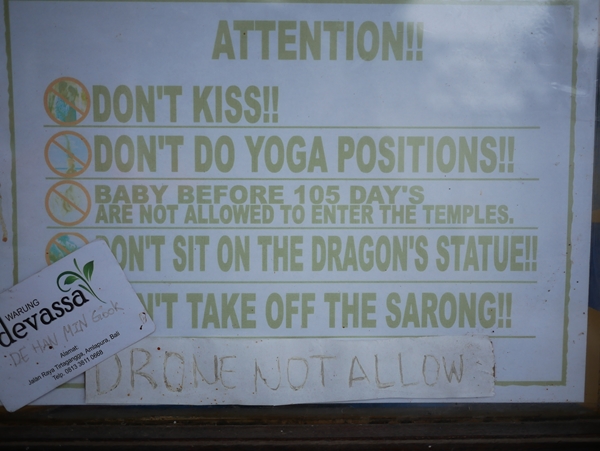 ATTENTION!!
DON'T KISS!!
DON'T DO YOGA POSITIONS!!
BABY BEFORE 105 DAY'S
ARE NOT ALLOWED TO ENTER THE TEMPLES.
DON'T SIT ON THE DRAGON'S STATUE!!
'T TAKE OFF THE SARONG!!
DRONE NOT ALLOW
WARUNG
devassa
DE HAN MIN Gook
Alamat:
Jalan Raya Tirtagangga, Amlapura, Bali
Telp. 0813 3811 0668